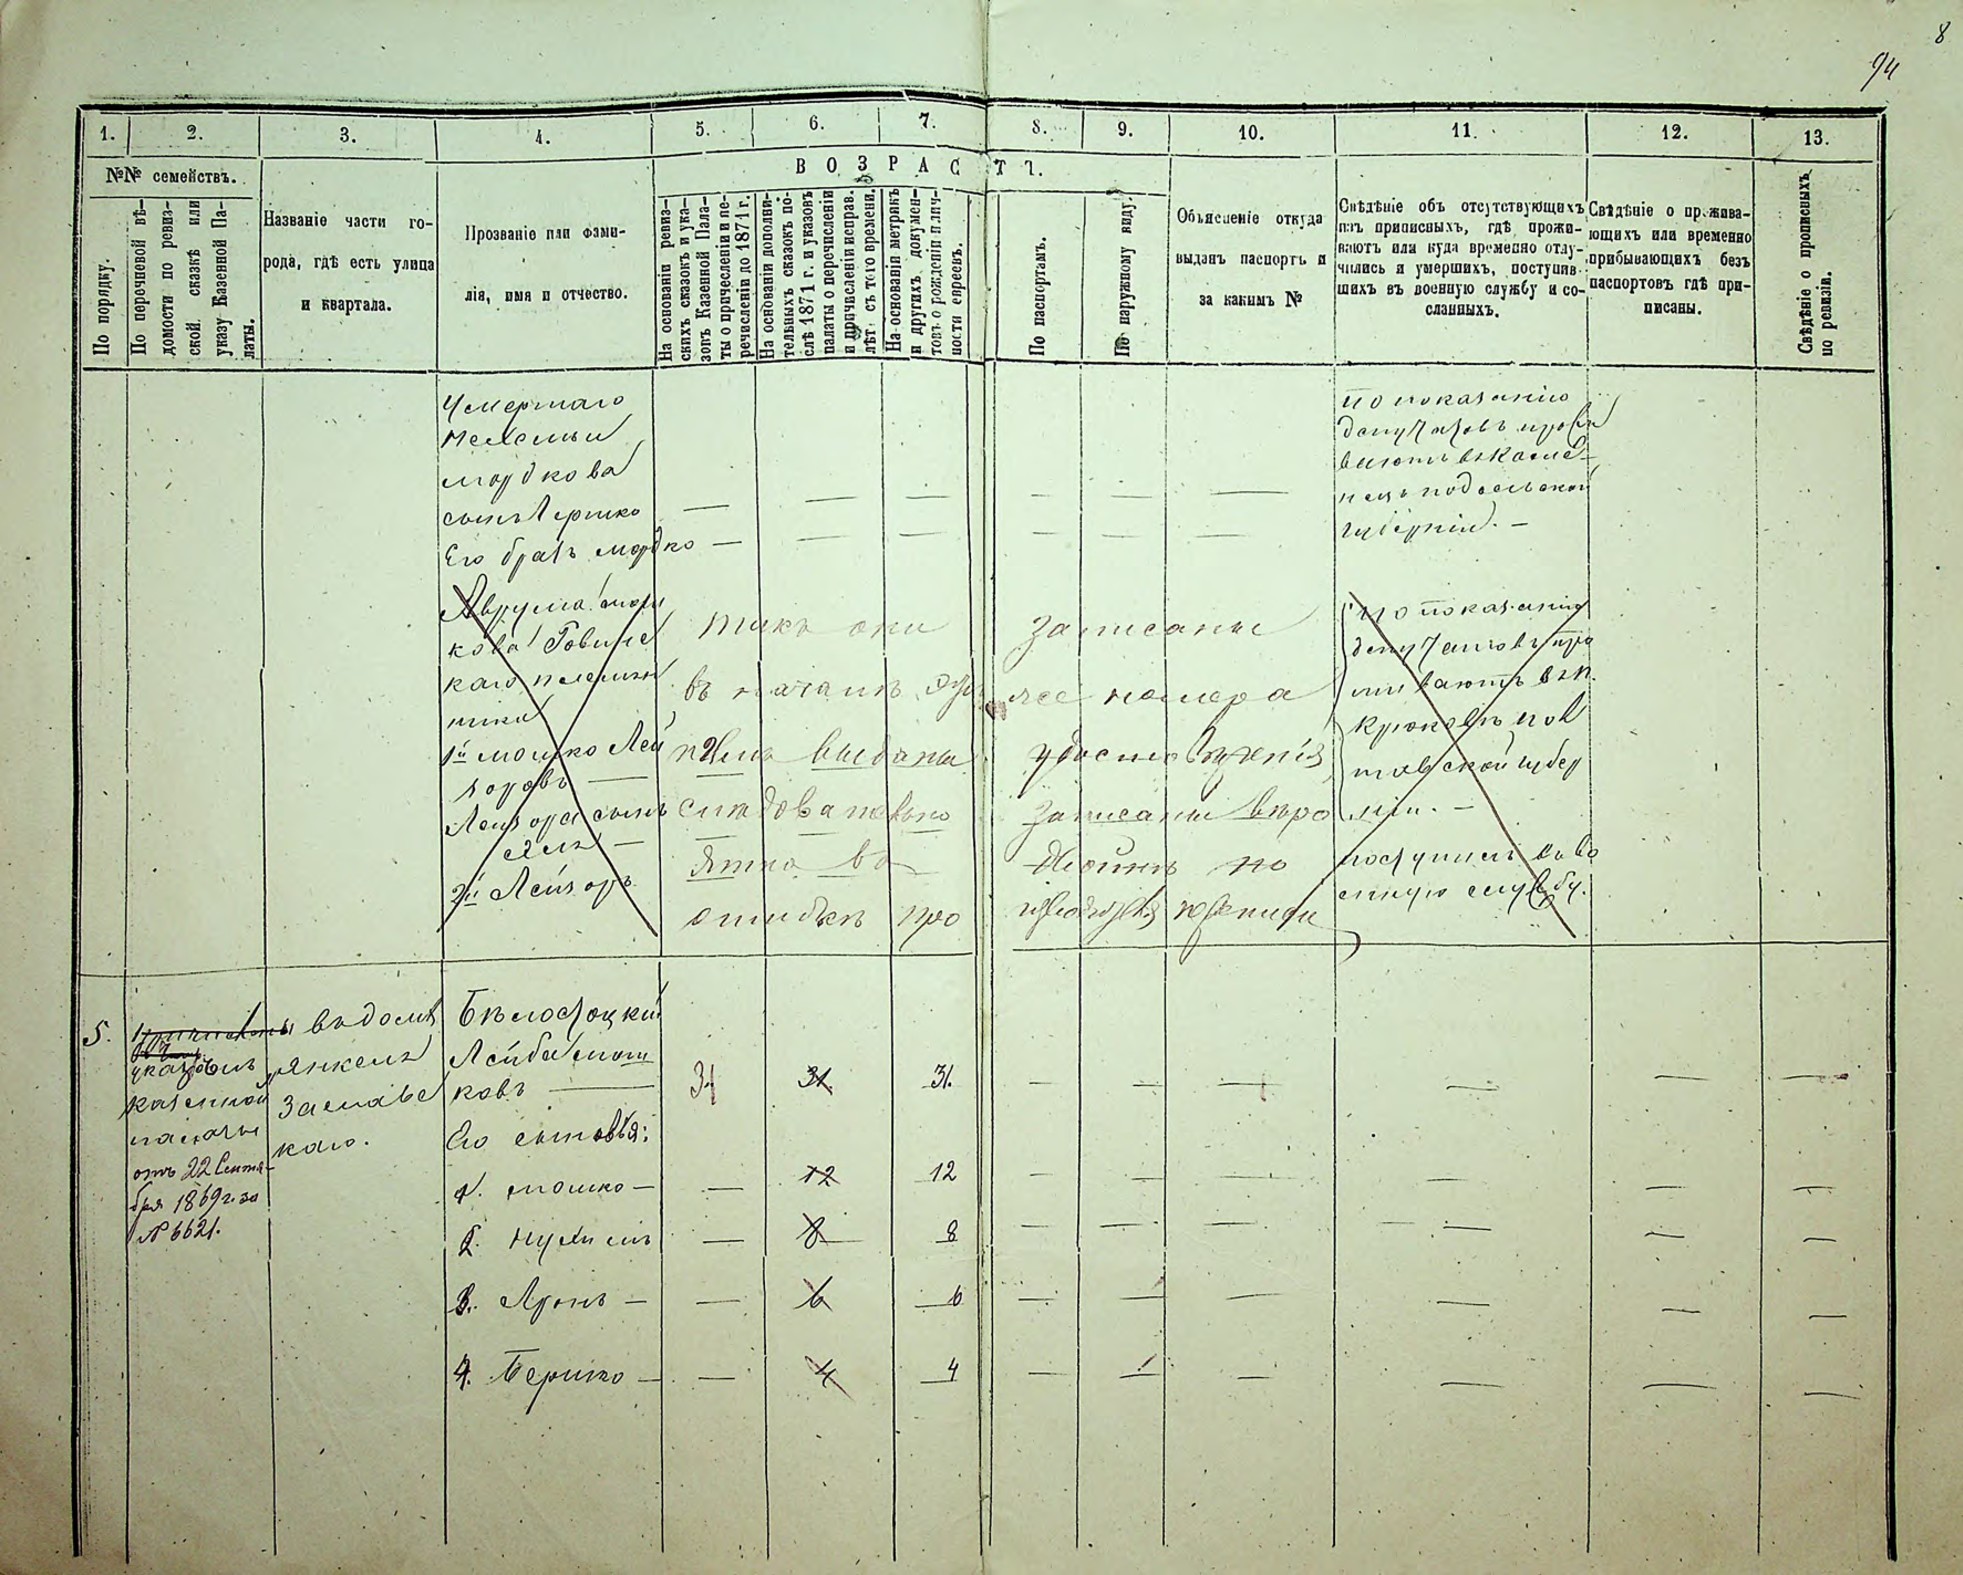 8
94
1.
2.
3.
4.
5.
6.
7.
8.
9.
10.
11.
12.
13.
№№ семействъ.
ВОЗРАСТЪ.
По порядку.
По перечневой вѣ-
домости по ревиз-
ской сказкѣ или
указу Казенной Па-
латы.
Названіе части го-
рода, гдѣ есть улица
и квартала.
Прозваніе или фами-
лія, имя и отчество.
На основаніи ревиз-
скихъ сказокъ и ука-
зовъ Казенной Пала-
ты о причесленіи и пе-
речисленіи до 1871 г.
На основаніи дополни-
тельныхъ сказокъ по-
слѣ 1871 г. и указовъ
палаты о перечисленіи
и причисленіи исправ.
лѣтъ съ того времени.
На основаніи метрикъ
и другихъ докумен-
товъ о рожденіи и лич-
ности евреевъ.
По паспортамъ.
По наружному виду.
Объясненіе откуда
выданъ паспортъ и
за какимъ №
Свѣдѣніе объ отсутствующихъ
изъ приписныхъ, гдѣ прожи-
ваютъ или куда временно отлу-
чились и умершихъ, поступив-
шихъ въ военную службу и со-
сланныхъ.
Свѣдѣніе о прожива-
ющихъ или временно
прибывающихъ безъ
паспортовъ гдѣ при-
писаны.
Свѣдѣніе о прописныхъ
по ревизіи.
Умершаго
мордкова
сынъ Гершко
Его братъ мордко
по показанію
депутатовъ прожи
ваютъ въ Каме-
нецъ подольской
губерніи. –
Аврума мош
кова Ровинс
каго племян
ника
1й мошко Лей
зоровъ
Лейзора сынъ
2й Лейзоръ
такъ они записаны
въ началѣ этого же номера
и имъ выданы удостовѣренія
слѣдовательно записаны въ
ошибкѣ
по показанію
депутатовъ про
живаютъ въ м.
Крюковъ пол
тавской губер
ніи. –
поступилъ въ во
енную службу.
5.
указомъ
казенной
палаты
отъ 22 Сентя-
бря 1869 г. за
№ 6621.
въ домѣ
янкеля
Заславс
каго.
Бѣлоцкій
Лейба мош
ковъ
31
31
31.
Его сыновья:
1. мошко – 12 12
2. Нухимъ 8 8
3. Аронъ – 6 6
4. Бершко – 4 4